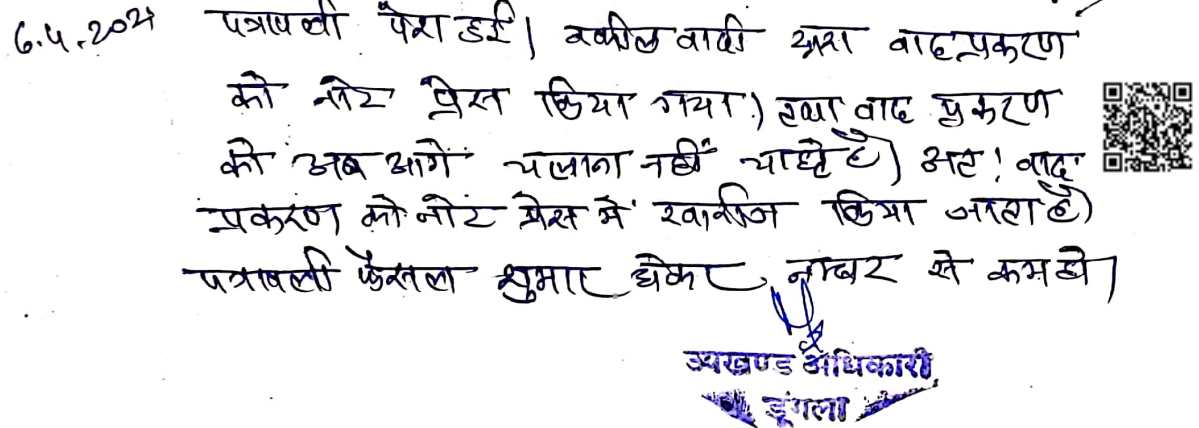 6.4.2021 पत्रावली पेश हुई। वकील वादी द्वारा वाद प्रकरण
को नोट प्रेस किया गया। तथा वाद प्रकरण
को अब आगे चलाना नहीं चाहते है। अतः वाद
प्रकरण को नोट प्रेस में खारीज किया जाता है।
पत्रावली फैसल शुमार होकर नम्बर से कम हो।
उपखण्ड अधिकारी
डूंगला